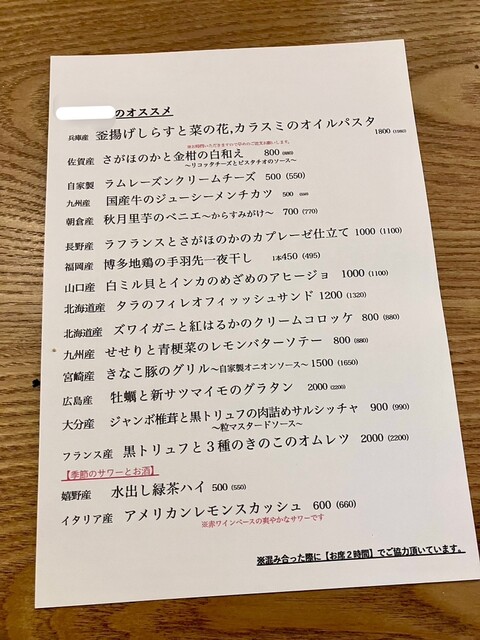 のオススメ
兵庫産 釜揚げしらすと菜の花,カラスミのオイルパスタ 1800 (1980)
佐賀産 さがほのかと金柑の白和え 800 (880)
～リコッタチーズとピスタチオのソース～
自家製 ラムレーズンクリームチーズ 500 (550)
九州産 国産牛のジューシーメンチカツ 500
朝倉産 秋月里芋のベニエ～からすみがけ～ 700 (770)
長野産 ラフランスとさがほのかのカプレーゼ仕立て 1000 (1100)
福岡産 博多地鶏の手羽先一夜干し 1本450 (495)
山口産 白ミル貝とインカのめざめのアヒージョ 1000 (1100)
北海道産 タラのフィレオフィッッシュサンド 1200 (1320)
北海道産 ズワイガニと紅はるかのクリームコロッケ 800 (880)
九州産 せせりと青梗菜のレモンバターソテー 800 (880)
宮崎産 きなこ豚のグリル～自家製オニオンソース～ 1500 (1650)
広島産 牡蠣と新サツマイモのグラタン 2000 (2200)
大分産 ジャンボ椎茸と黒トリュフの肉詰めサルシッチャ 900 (990)
～粒マスタードソース～
フランス産 黒トリュフと３種のきのこのオムレツ 2000 (2200)
【季節のサワーとお酒】
嬉野産 水出し緑茶ハイ 500 (550)
イタリア産 アメリカンレモンスカッシュ 600 (660)
※赤ワインベースの爽やかなサワーです
※混み合った際に【お席２時間】でご協力頂いています。